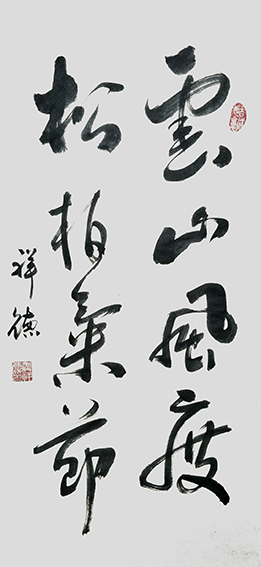 雲山風度
松柏氣節
祥德